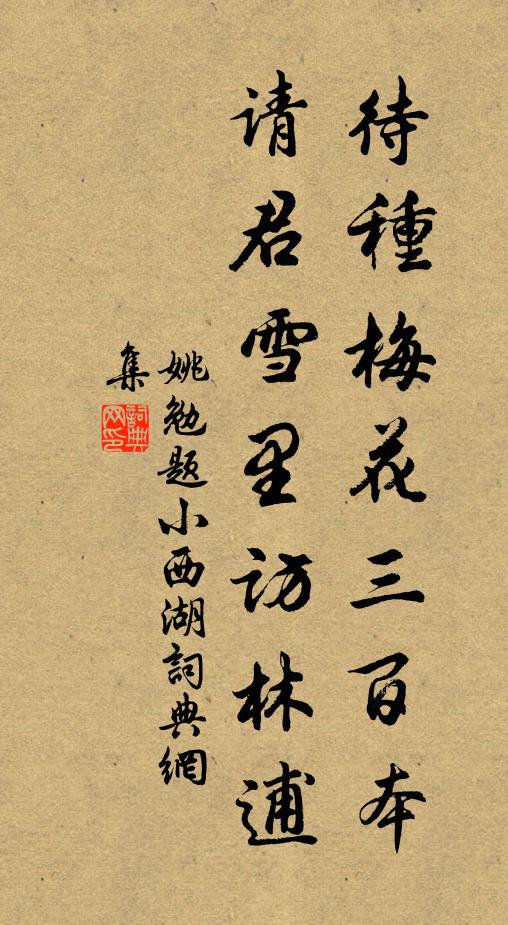 待種梅花三百本
请君雪里访林逋
姚勉题小西湖詞典網
集
詞典网印